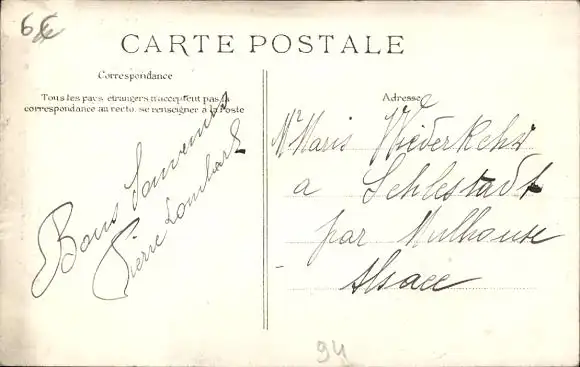 6€
CARTE POSTALE
Correspondance
Tous les pays étrangers n'acceptent pas la
correspondance au recto, se renseigner à la Poste
Bons Souvenirs
Pierre Lombart
Adresse
Mr Maris Wiederkehr
a Schlestadt
par Mulhouse
Alsace
94